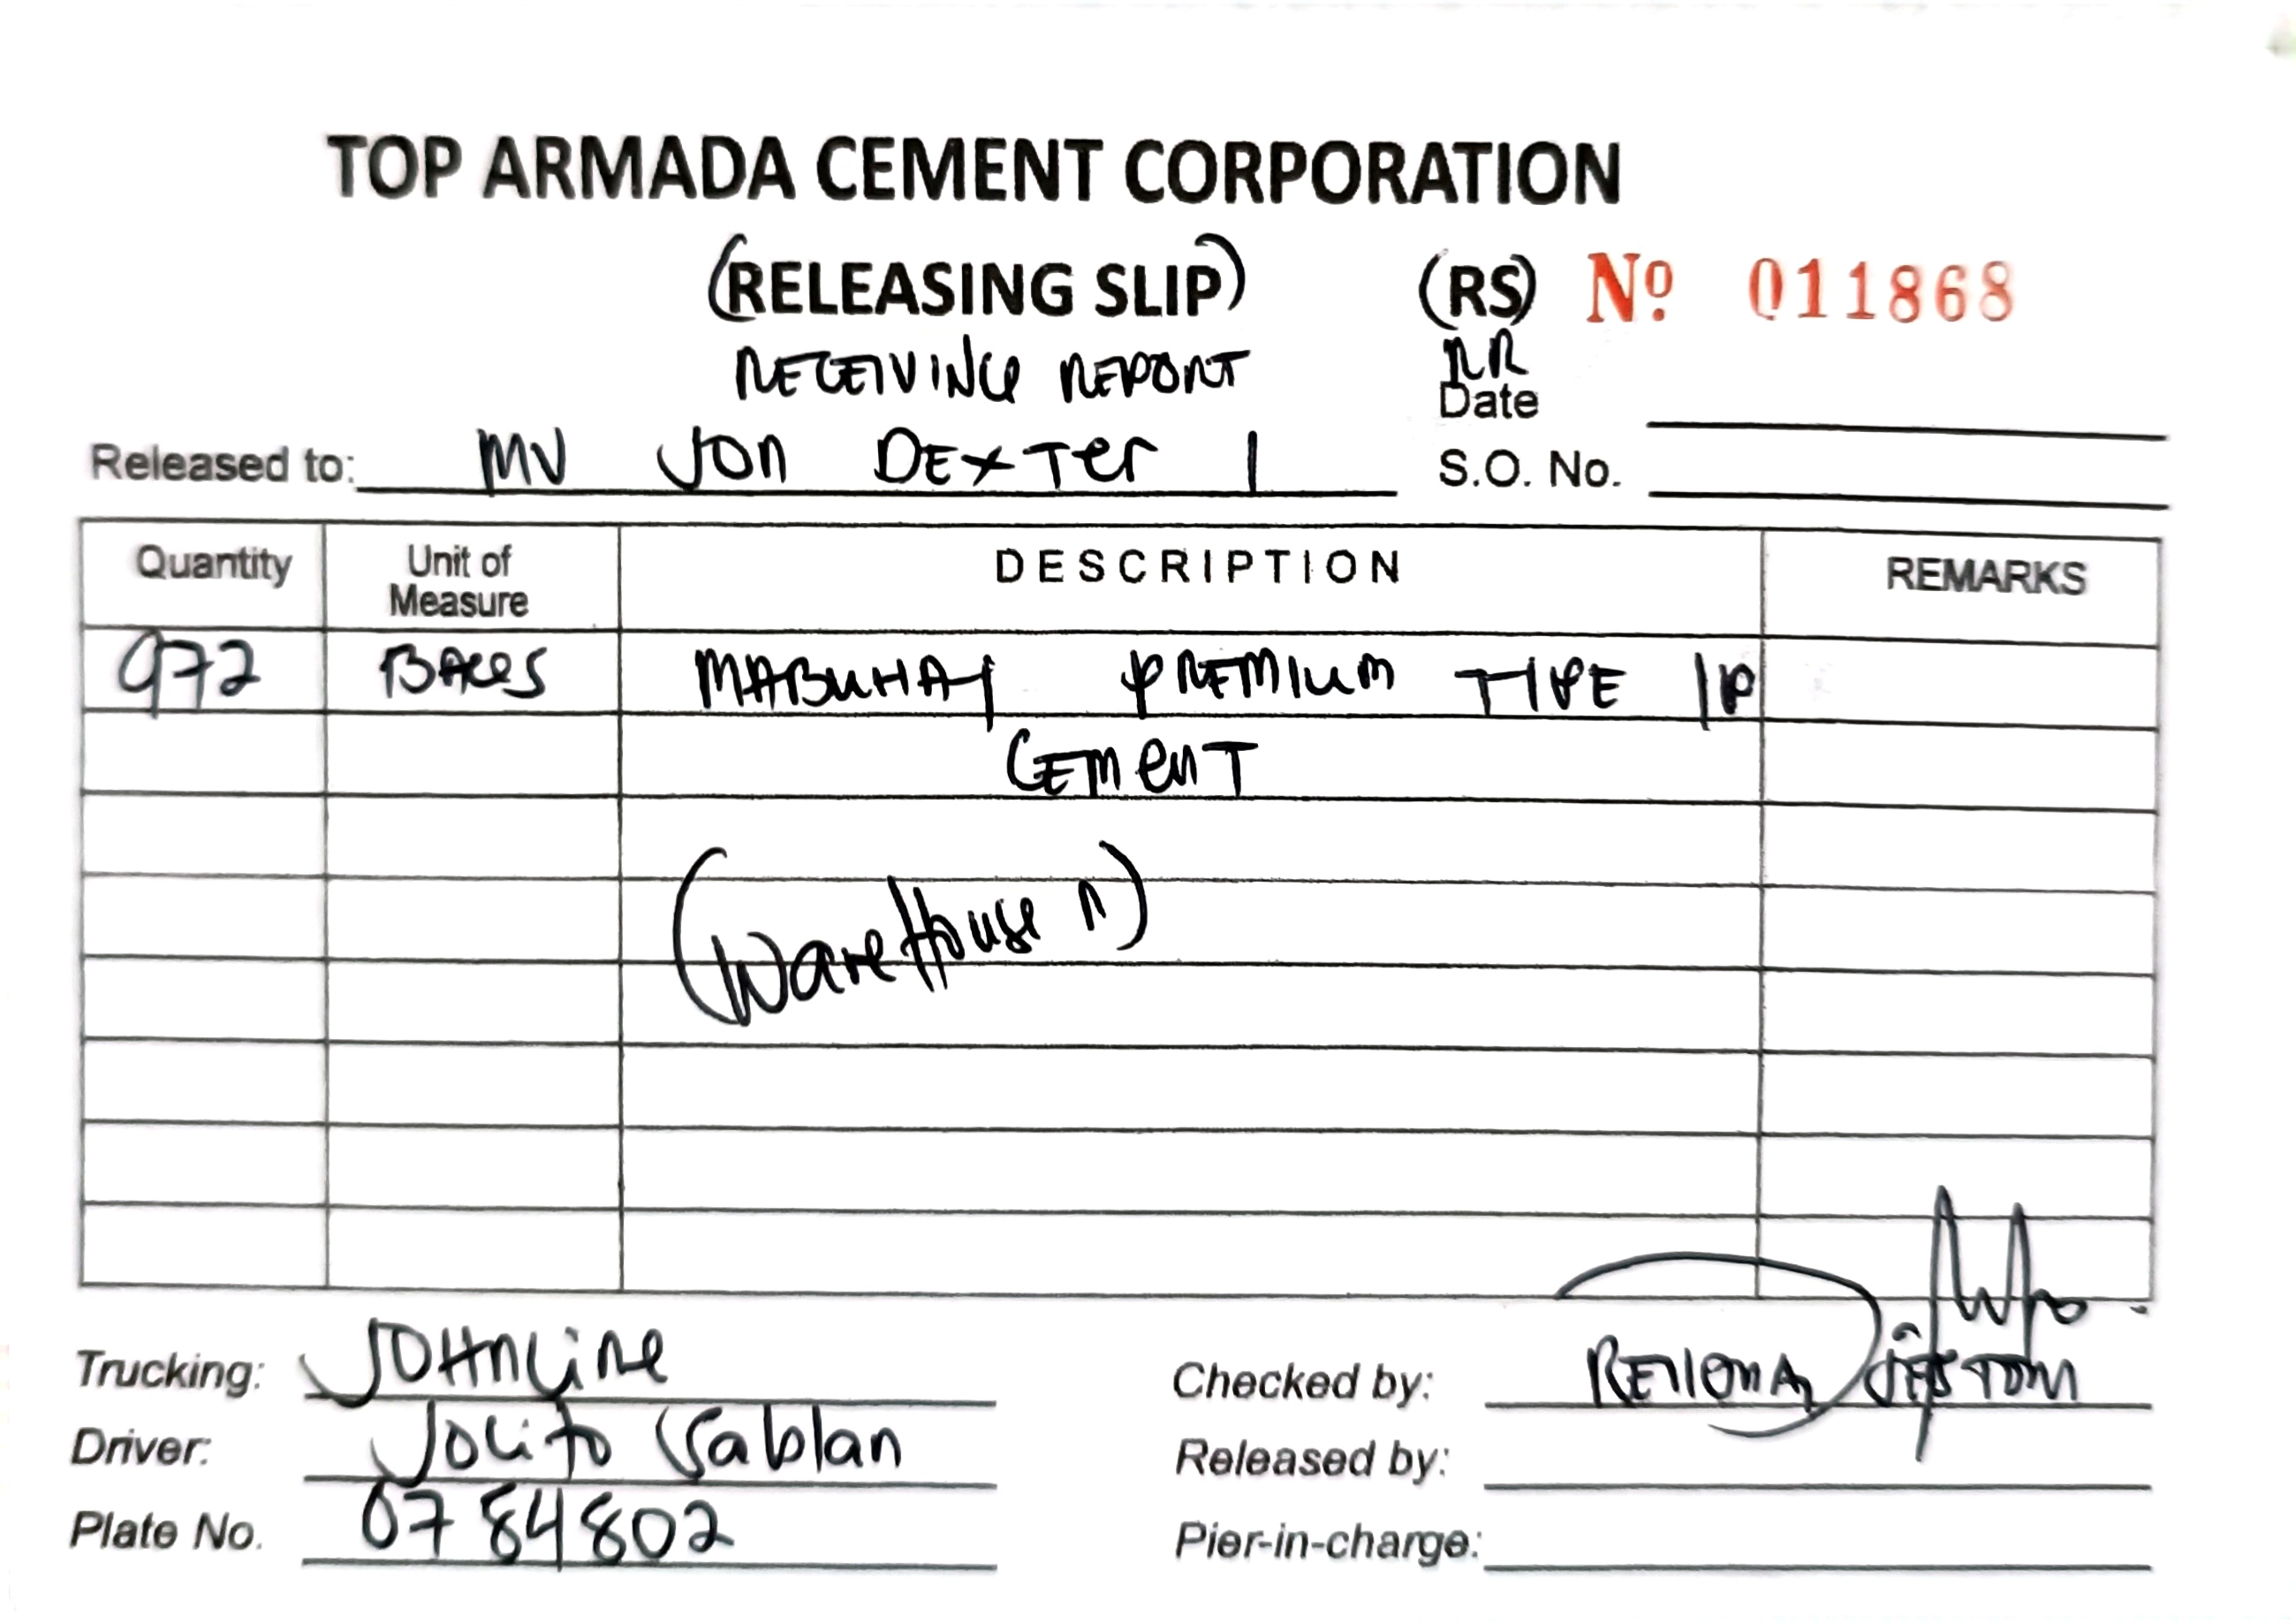 TOP ARMADA CEMENT CORPORATION
(RELEASING SLIP) (RS) Nº 011868
RECEIVING REPORT RR
Date
Released to: MV JON DEXTer 1 S.O. No.
Quantity Unit of Measure DESCRIPTION REMARKS
972 BAGS MABUHAY PREMIUM TYPE 1P
CEMENT
(WareHouse A)
Trucking: JOHNLINE Checked by:
Driver: JOLITO Sablan Released by:
Plate No. 0784802 Pier-in-charge: